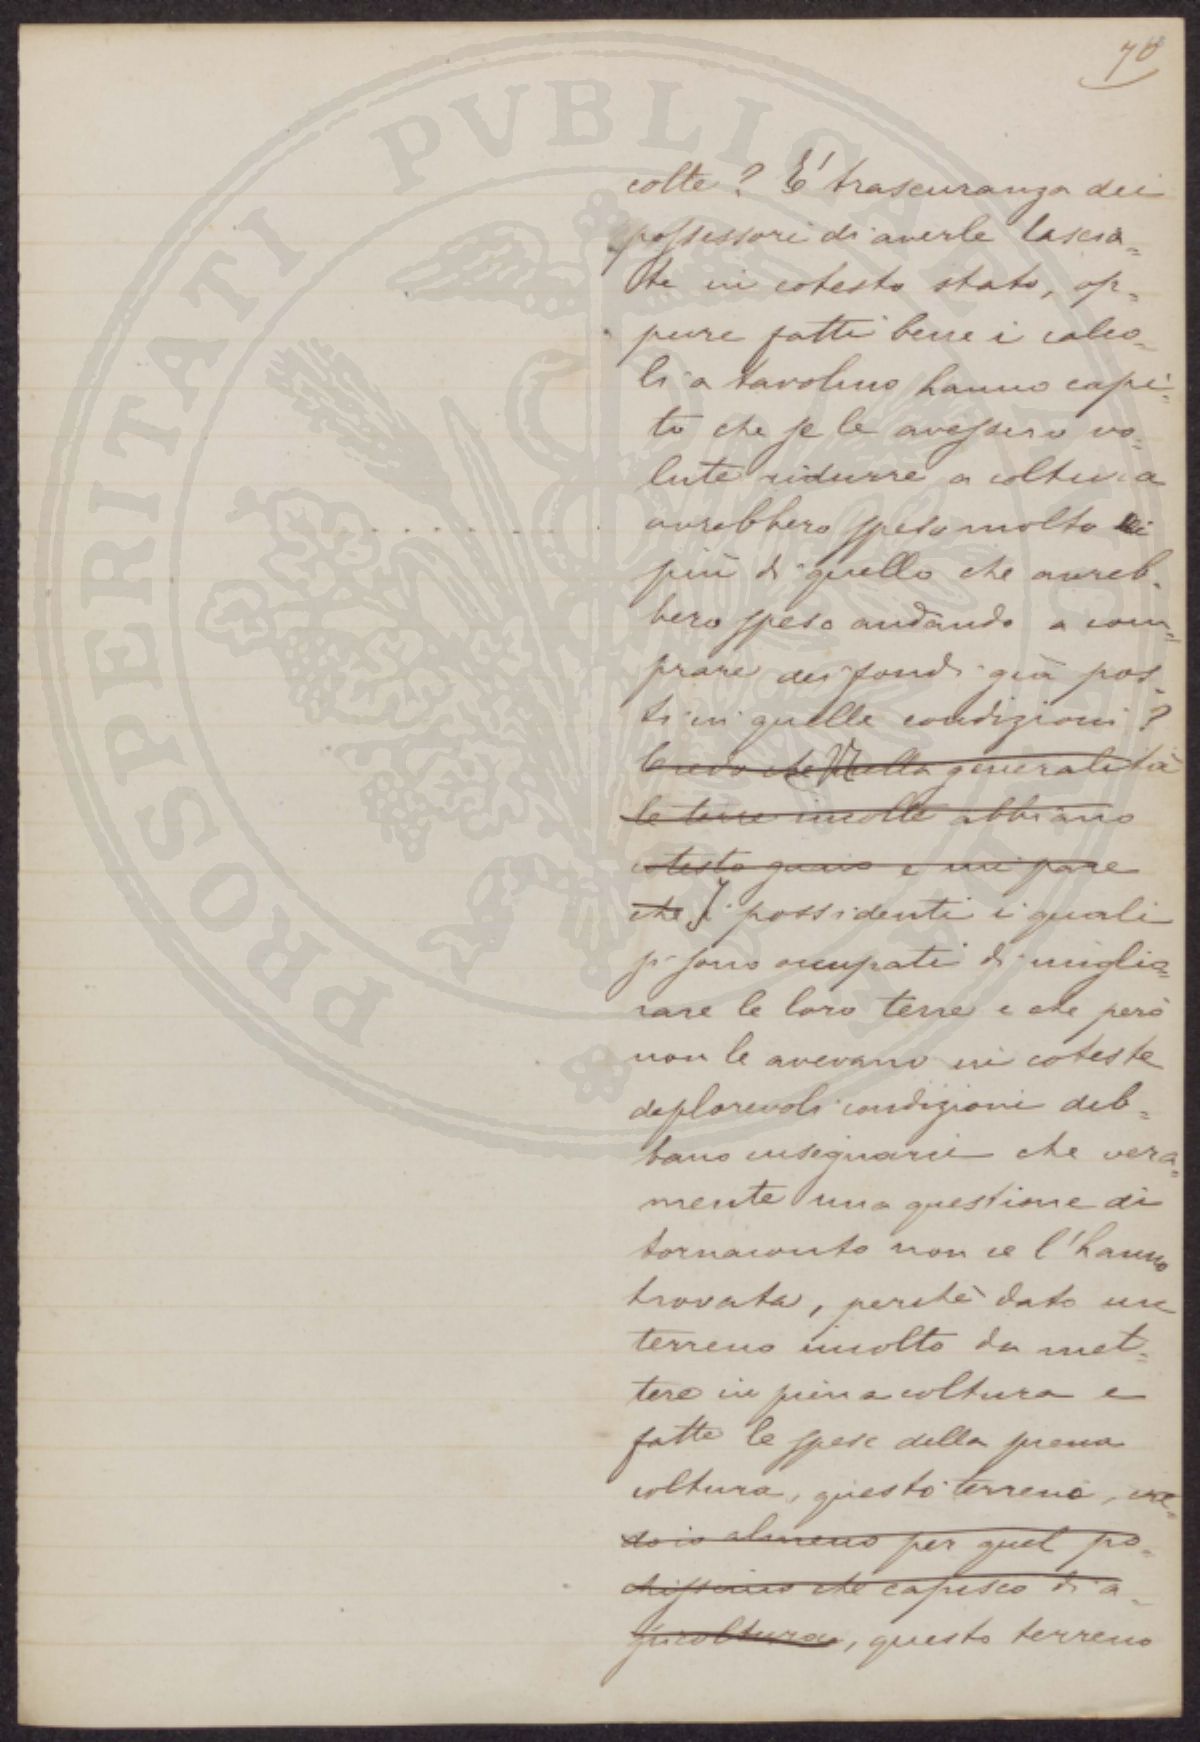 70
colte? E' trascuranza dei
possessori di averle lascia=
te in cotesto stato, op=
pure fatti bene i calco=
li a tavolino hanno capi=
to che se le avessero vo=
lute ridurre a coltura
avrebbero speso molto di
più di quello che avreb=
bero speso andando a com=
prare dei fondi già pos=
ti in quelle condizioni?
Credo che Nella generalità
le terre incolte abbiano
cotesto guaio e mi pare
che I possidenti i quali
si sono occupati di miglio=
rare le loro terre e che però
non le avevano in coteste
deplorevoli condizioni deb=
bano insegnarci che vera=
mente una questione di
tornaconto non ce l'hanno
trovata, perchè dato un
terreno incolto da met=
tere in piena coltura e
fatte le spese della piena
coltura, questo terreno, cre=
do io almeno per quel po=
chissimo che capisco di a=
gricoltura, questo terreno
PROSPERITATI PVBLICAE AVGENDAE